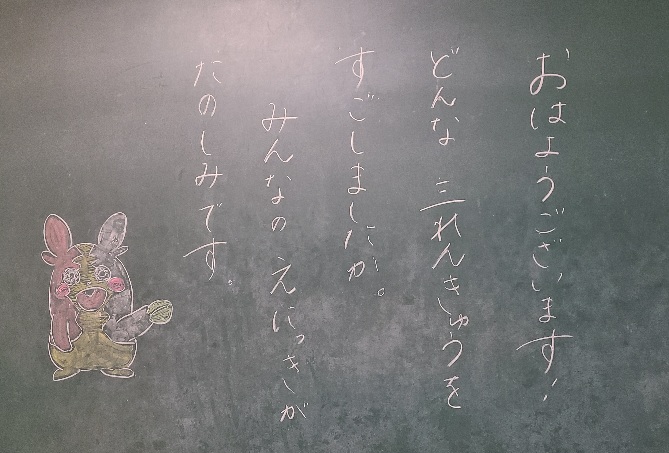 おはようございます!
どんな 三れんきゅうを
すごしましたか。
みんなの えにっきが
たのしみです。